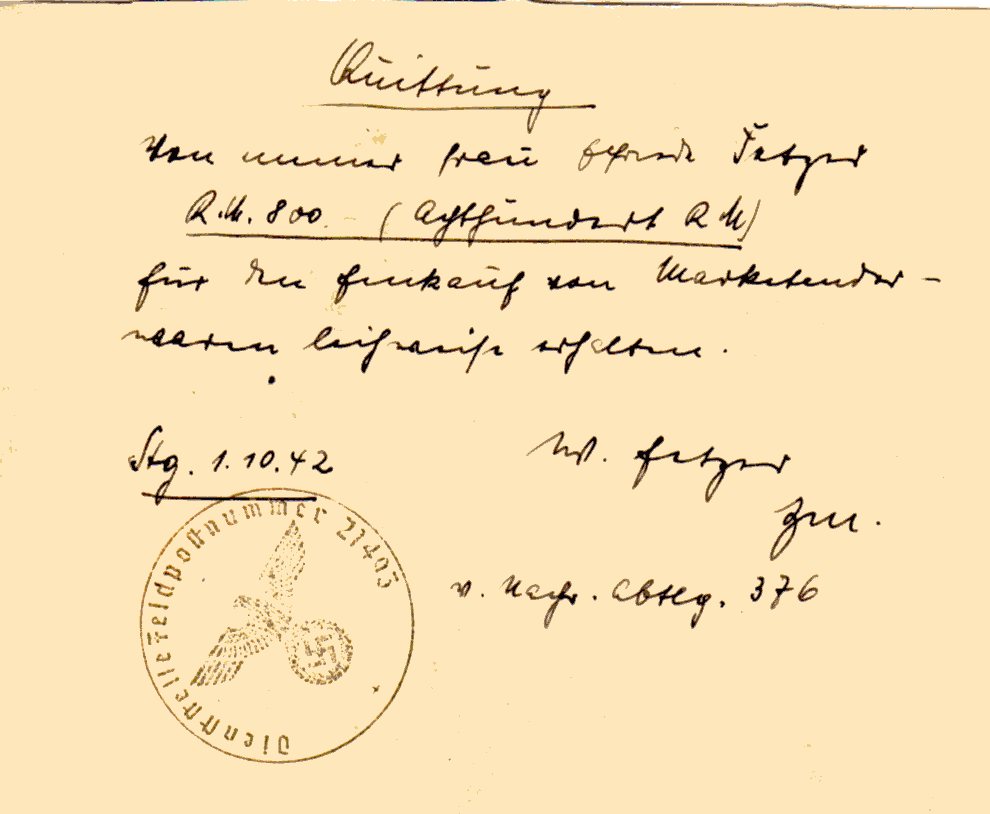 Quittung
Von meiner Frau Elfriede Fetzer
R.M. 800.- (Achthundert R M)
für den Einkauf von Marketender-
waren leihweise erhalten.
Stg. 1.10.42
W. Fetzer
v. Nachr. Abtlg. 376
Dienststelle Feldpostnummer 27403